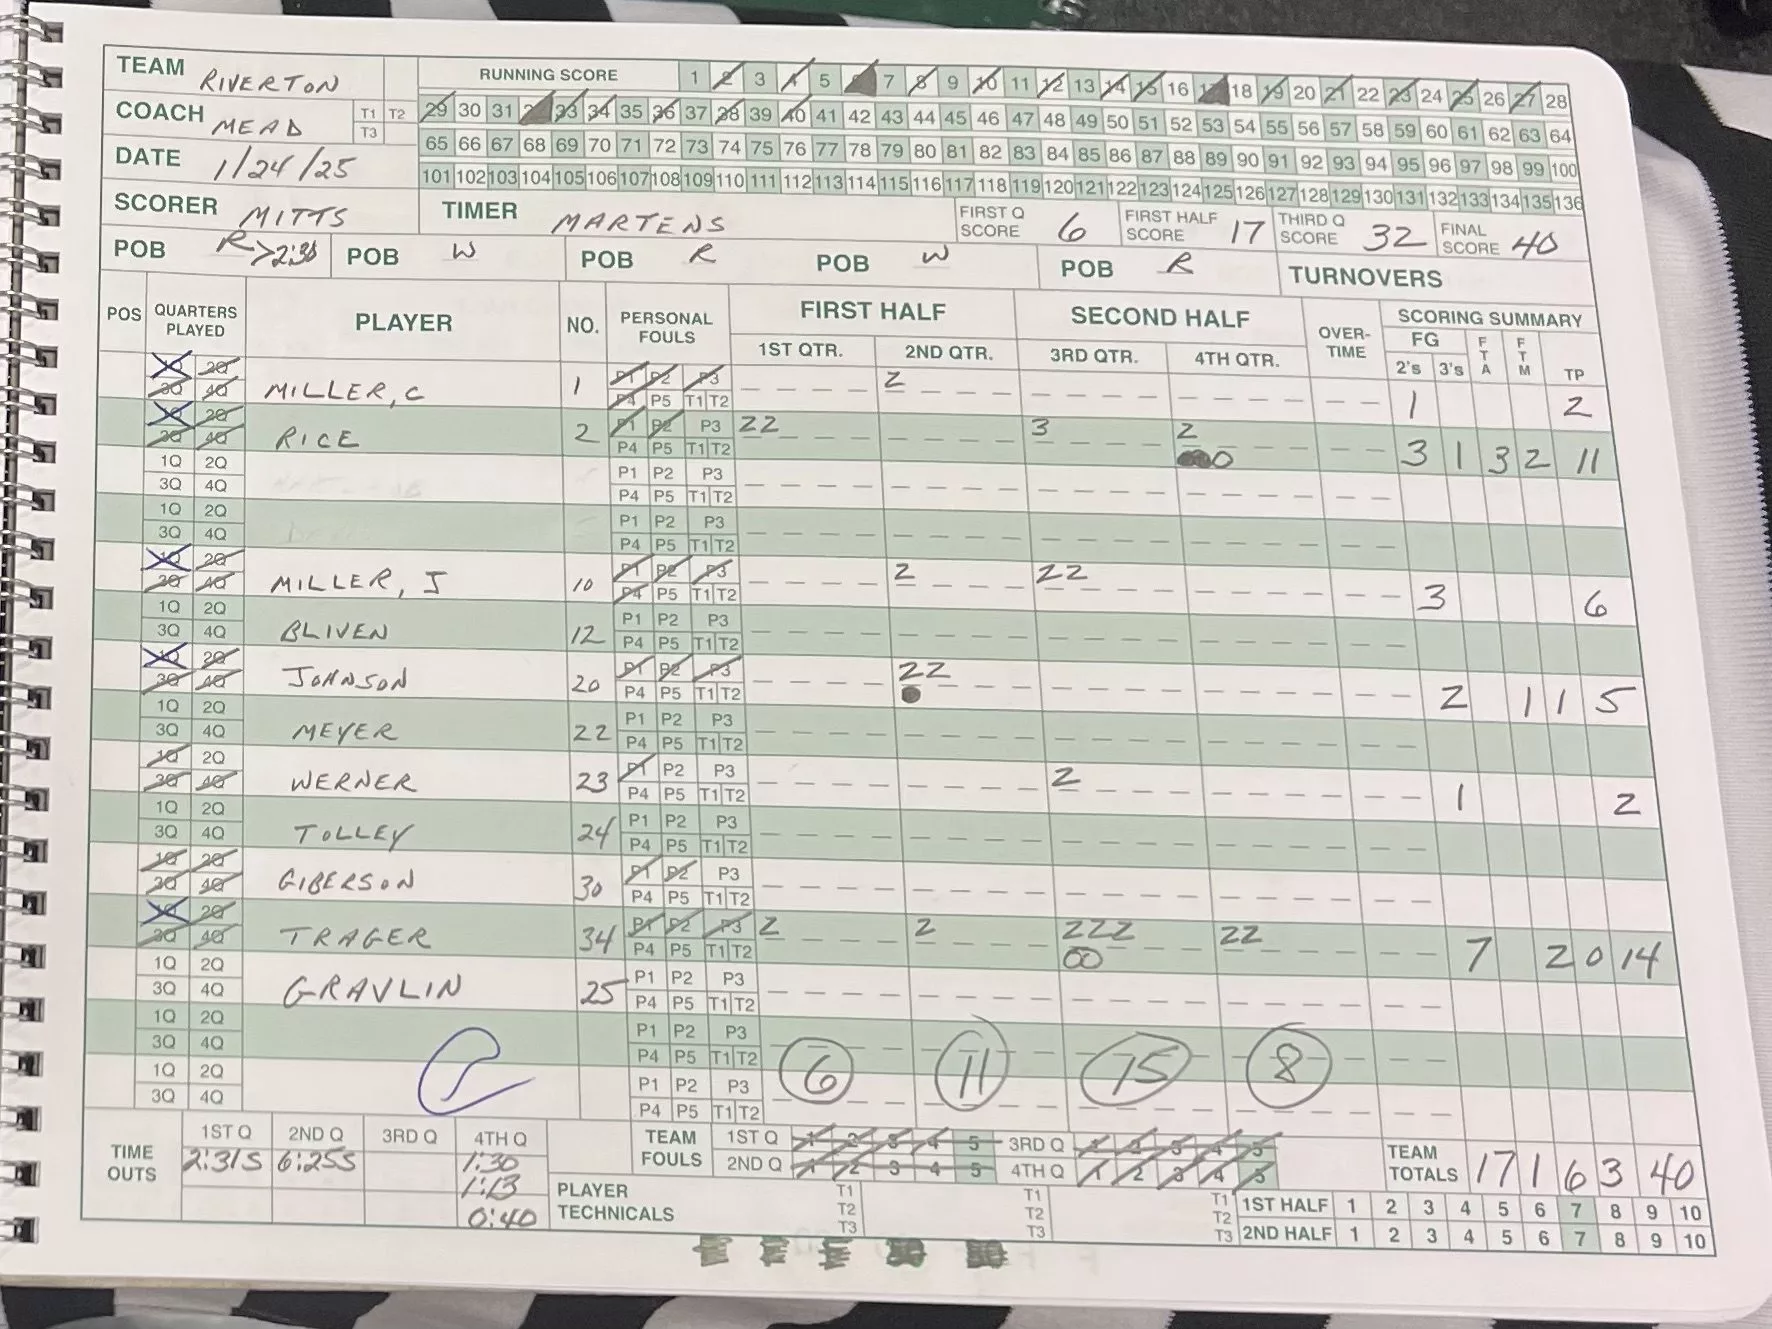 TEAM RIVERTON RUNNING SCORE 1 2 3 4 5 6 7 8 9 10 11 12 13 14 15 16 17 18 19 20 21 22 23 24 25 26 27 28
COACH MEAD T1 T2 T3 29 30 31 33 34 35 36 37 38 39 40 41 42 43 44 45 46 47 48 49 50 51 52 53 54 55 56 57 58 59 60 61 62 63 64
DATE 1/24/25 65 66 67 68 69 70 71 72 73 74 75 76 77 78 79 80 81 82 83 84 85 86 87 88 89 90 91 92 93 94 95 96 97 98 99 100
101 102 103 104 105 106 107 108 109 110 111 112 113 114 115 116 117 118 119 120 121 122 123 124 125 126 127 128 129 130 131 132 133 134 135 136
SCORER MITTS TIMER MARTENS FIRST Q SCORE 6 FIRST HALF SCORE 17 THIRD Q SCORE 32 FINAL SCORE 40
POB R>2:30 POB W POB R POB W POB R TURNOVERS
POS QUARTERS PLAYED PLAYER NO. PERSONAL FOULS FIRST HALF SECOND HALF OVER-TIME SCORING SUMMARY
1ST QTR. 2ND QTR. 3RD QTR. 4TH QTR. FG 2's 3's FTA FTM TP
1Q 2Q 3Q 4Q MILLER, C 1 P1 P2 P3 P4 P5 T1 T2 2 1 2
1Q 2Q 3Q 4Q RICE 2 P1 P2 P3 P4 P5 T1 T2 22 3 2 0 3 1 3 2 11
1Q 2Q 3Q 4Q P1 P2 P3 P4 P5 T1 T2
1Q 2Q 3Q 4Q P1 P2 P3 P4 P5 T1 T2
1Q 2Q 3Q 4Q MILLER, J 10 P1 P2 P3 P4 P5 T1 T2 2 22 3 6
1Q 2Q 3Q 4Q BLIVEN 12 P1 P2 P3 P4 P5 T1 T2
1Q 2Q 3Q 4Q JOHNSON 20 P1 P2 P3 P4 P5 T1 T2 22 2 1 1 5
1Q 2Q 3Q 4Q MEYER 22 P1 P2 P3 P4 P5 T1 T2
1Q 2Q 3Q 4Q WERNER 23 P1 P2 P3 P4 P5 T1 T2 2 1 2
1Q 2Q 3Q 4Q TOLLEY 24 P1 P2 P3 P4 P5 T1 T2
1Q 2Q 3Q 4Q GIBERSON 30 P1 P2 P3 P4 P5 T1 T2
1Q 2Q 3Q 4Q TRAGER 34 P1 P2 P3 P4 P5 T1 T2 2 2 222 00 22 7 2 0 14
1Q 2Q 3Q 4Q GRAVLIN 25 P1 P2 P3 P4 P5 T1 T2
1Q 2Q 3Q 4Q P1 P2 P3 P4 P5 T1 T2 6 11 15 8
1Q 2Q 3Q 4Q P1 P2 P3 P4 P5 T1 T2
TIME OUTS 1ST Q 2ND Q 3RD Q 4TH Q TEAM FOULS 1ST Q 1 2 3 4 5 3RD Q 1 2 3 4 5 TEAM TOTALS 17 1 6 3 40
2:31.5 6:25.5 1:30 2ND Q 1 2 3 4 5 4TH Q 1 2 3 4 5
1:13 PLAYER TECHNICALS T1 T1 T1 1ST HALF 1 2 3 4 5 6 7 8 9 10
0:40 T2 T2 T2 2ND HALF 1 2 3 4 5 6 7 8 9 10
T3 T3 T3